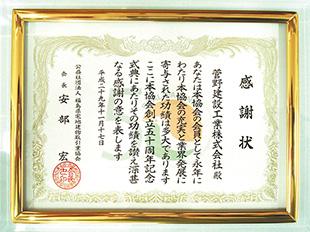 感謝状
菅野建設工業株式会社 殿
あなたは本協会の会員として永年に
わたり本協会の充実と業界発展に
寄与された功績は多大であります
ここに本協会創立五十周年記念
式典にあたりその功績を讃え深甚
なる感謝の意を表します
平成二十九年十一月十七日
公益社団法人 福島県宅地建物取引業協会
会長 安部 宏